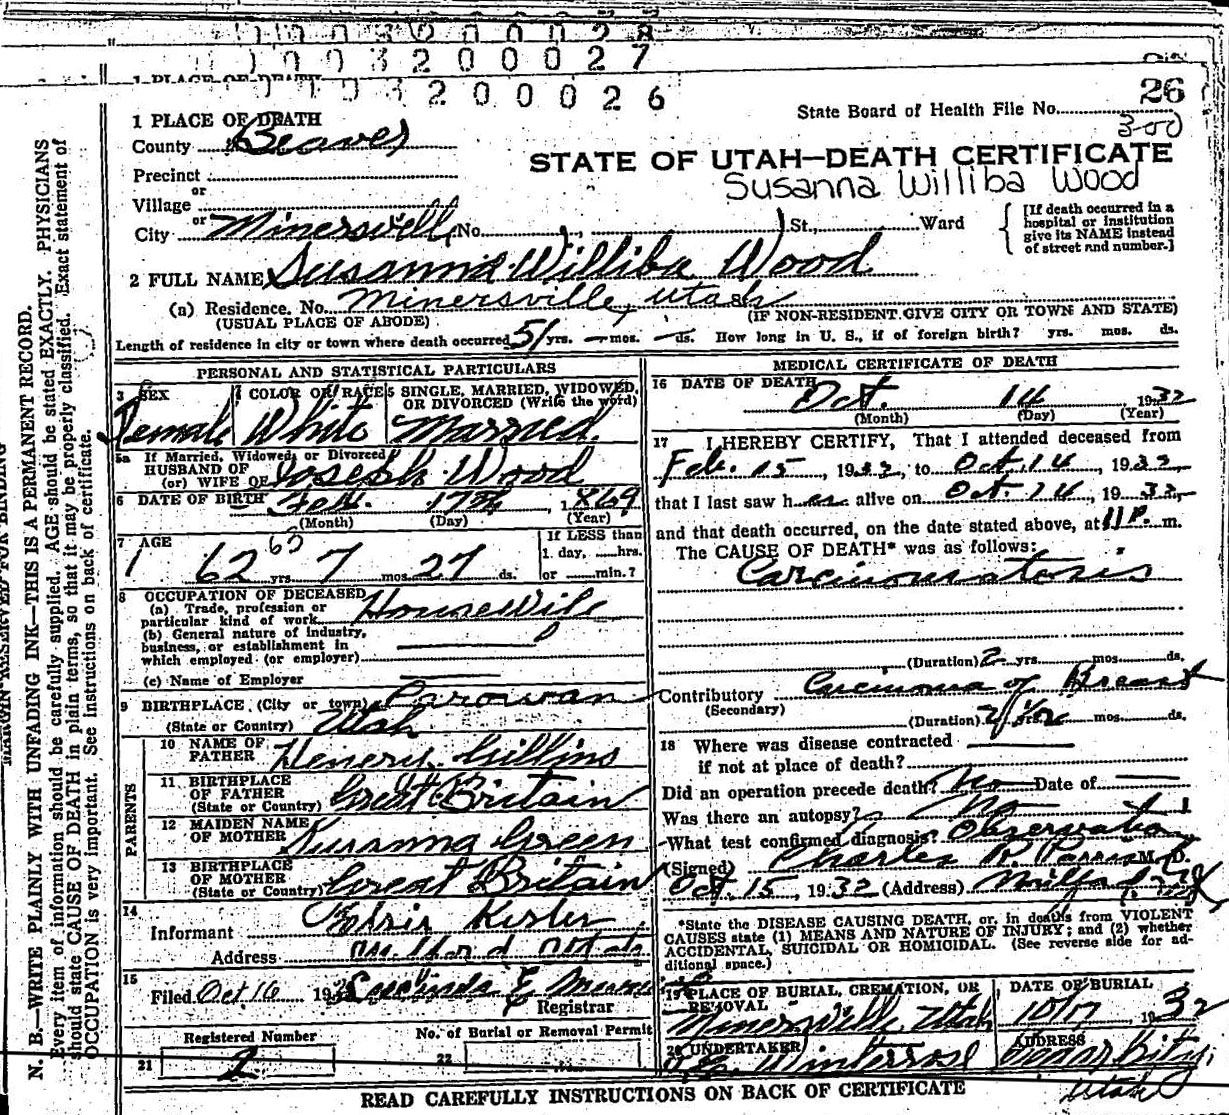 0 0 3 2 0 0 0 2 8
0 0 3 2 0 0 0 2 7
1 PLACE OF DEATH
0 3 2 0 0 0 2 6
26
State Board of Health File No.
300
1 PLACE OF DEATH
County Beaver
STATE OF UTAH—DEATH CERTIFICATE
Susanna Williba Wood
Precinct
or
Village
or
City Minersville No. St., Ward
[If death occurred in a
hospital or institution
give its NAME instead
of street and number.]
2 FULL NAME Susanna Williba Wood
(a) Residence. No. Minersville, Utah St.
(USUAL PLACE OF ABODE) (IF NON-RESIDENT GIVE CITY OR TOWN AND STATE)
Length of residence in city or town where death occurred 51 yrs. — mos. — ds. How long in U. S., if of foreign birth? yrs. mos. ds.
PERSONAL AND STATISTICAL PARTICULARS
3 SEX 4 COLOR OR RACE 5 SINGLE, MARRIED, WIDOWED, OR DIVORCED (Write the word)
Female White Married
5a If Married, Widowed or Divorced
HUSBAND OF
(or) WIFE OF Joseph Wood
6 DATE OF BIRTH Feb. 17th, 1869
(Month) (Day) (Year)
7 AGE If LESS than
63 1 day, hrs.
62 yrs. 7 mos. 27 ds. or min.?
8 OCCUPATION OF DECEASED
(a) Trade, profession or
particular kind of work Housewife
(b) General nature of industry,
business, or establishment in
which employed (or employer)
(c) Name of Employer
9 BIRTHPLACE (City or town) Parowan
(State or Country) Utah
PARENTS
10 NAME OF
FATHER Henery Gillins
11 BIRTHPLACE
OF FATHER
(State or Country) Great Britain
12 MAIDEN NAME
OF MOTHER Susanna Green
13 BIRTHPLACE
OF MOTHER
(State or Country) Great Britain
14
Informant Kesler
Address Milford Utah
15
Filed Oct 16 1932 Lucinda E
Registrar
Registered Number No. of Burial or Removal Permit
21 2 22
MEDICAL CERTIFICATE OF DEATH
16 DATE OF DEATH Oct. 14 1932
(Month) (Day) (Year)
17 I HEREBY CERTIFY, That I attended deceased from
Feb. 15, 1932, to Oct. 14, 1932,
that I last saw her alive on Oct. 14, 1932,
and that death occurred, on the date stated above, at 11 P. m.
The CAUSE OF DEATH* was as follows:
Carcinomatosis
(Duration) 2 yrs. mos. ds.
Contributory Carcinoma of Breast
(Secondary)
(Duration) 2 1/2 yrs. mos. ds.
18 Where was disease contracted
if not at place of death?
Did an operation precede death? No Date of
Was there an autopsy? No
What test confirmed diagnosis? Observation
(Signed) Charles R. Parrish M. D.
Oct. 15, 1932 (Address) Milford, Utah
*State the DISEASE CAUSING DEATH, or, in deaths from VIOLENT
CAUSES state (1) MEANS AND NATURE OF INJURY; and (2) whether
ACCIDENTAL, SUICIDAL OR HOMICIDAL. (See reverse side for ad-
ditional space.)
19 PLACE OF BURIAL, CREMATION, OR REMOVAL DATE OF BURIAL
Minersville Utah 10/17, 1932
20 UNDERTAKER ADDRESS
Winterrose Cedar City,
Utah
READ CAREFULLY INSTRUCTIONS ON BACK OF CERTIFICATE
MARGIN RESERVED FOR BINDING
N. B.—WRITE PLAINLY WITH UNFADING INK—THIS IS A PERMANENT RECORD.
Every item of information should be carefully supplied. AGE should be stated EXACTLY. PHYSICIANS
should state CAUSE OF DEATH in plain terms, so that it may be properly classified. Exact statement of
OCCUPATION is very important. See instructions on back of certificate.